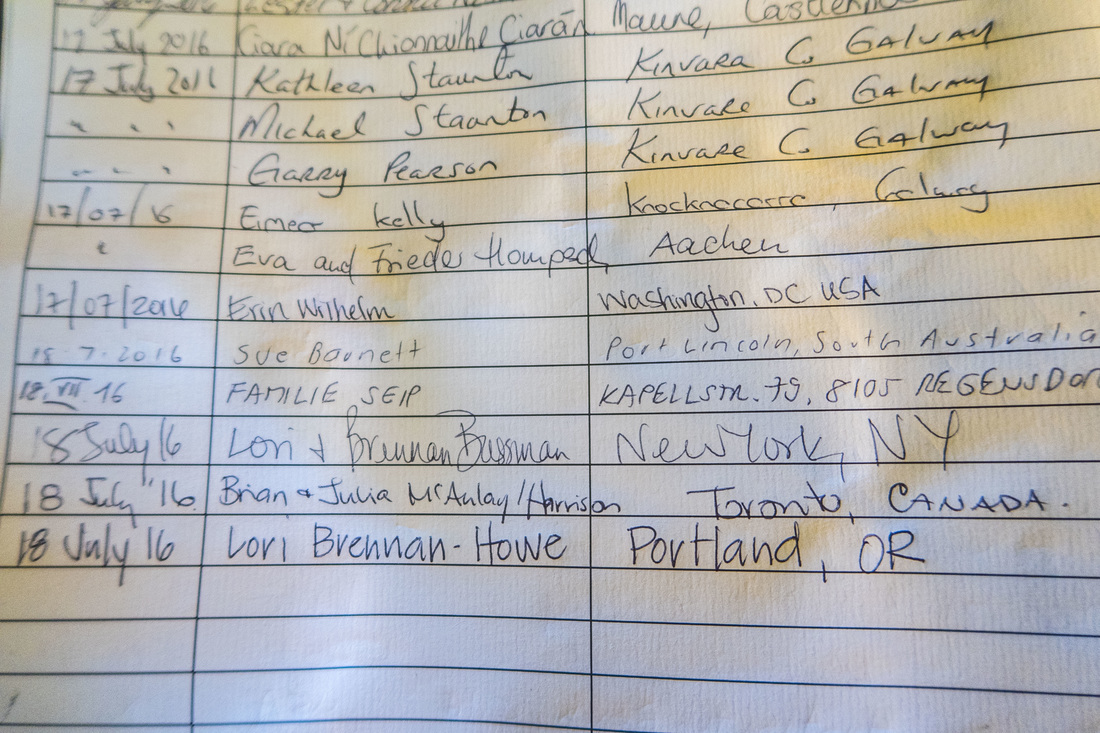 17 July 2016 Ciara Ní Chionnaithe Ciarán Maune,
17 July 2016 Kathleen Staunton Kinvara Co Galway
" " " Michael Staunton Kinvare Co Galway
" " " Garry Pearson Kinvare Co Galway
17/07/16 Eimer Kelly Knocknacarra, Galway
" Eva and Frieder Hompesch Aachen
17/07/2016 Erin Wilhelm Washington, DC USA
18.7.2016 Sue Barnett Port Lincoln, South Australia
18.VII.16 FAMILIE SEIP KAPELLSTR. 79, 8105 REGENSDORF
18 July 16 Lori & Brennan Bussman New York, NY
18 July '16. Brian & Julia McAulay/Harrison Toronto, CANADA.
18 July 16 Lori Brennan-Howe Portland, OR